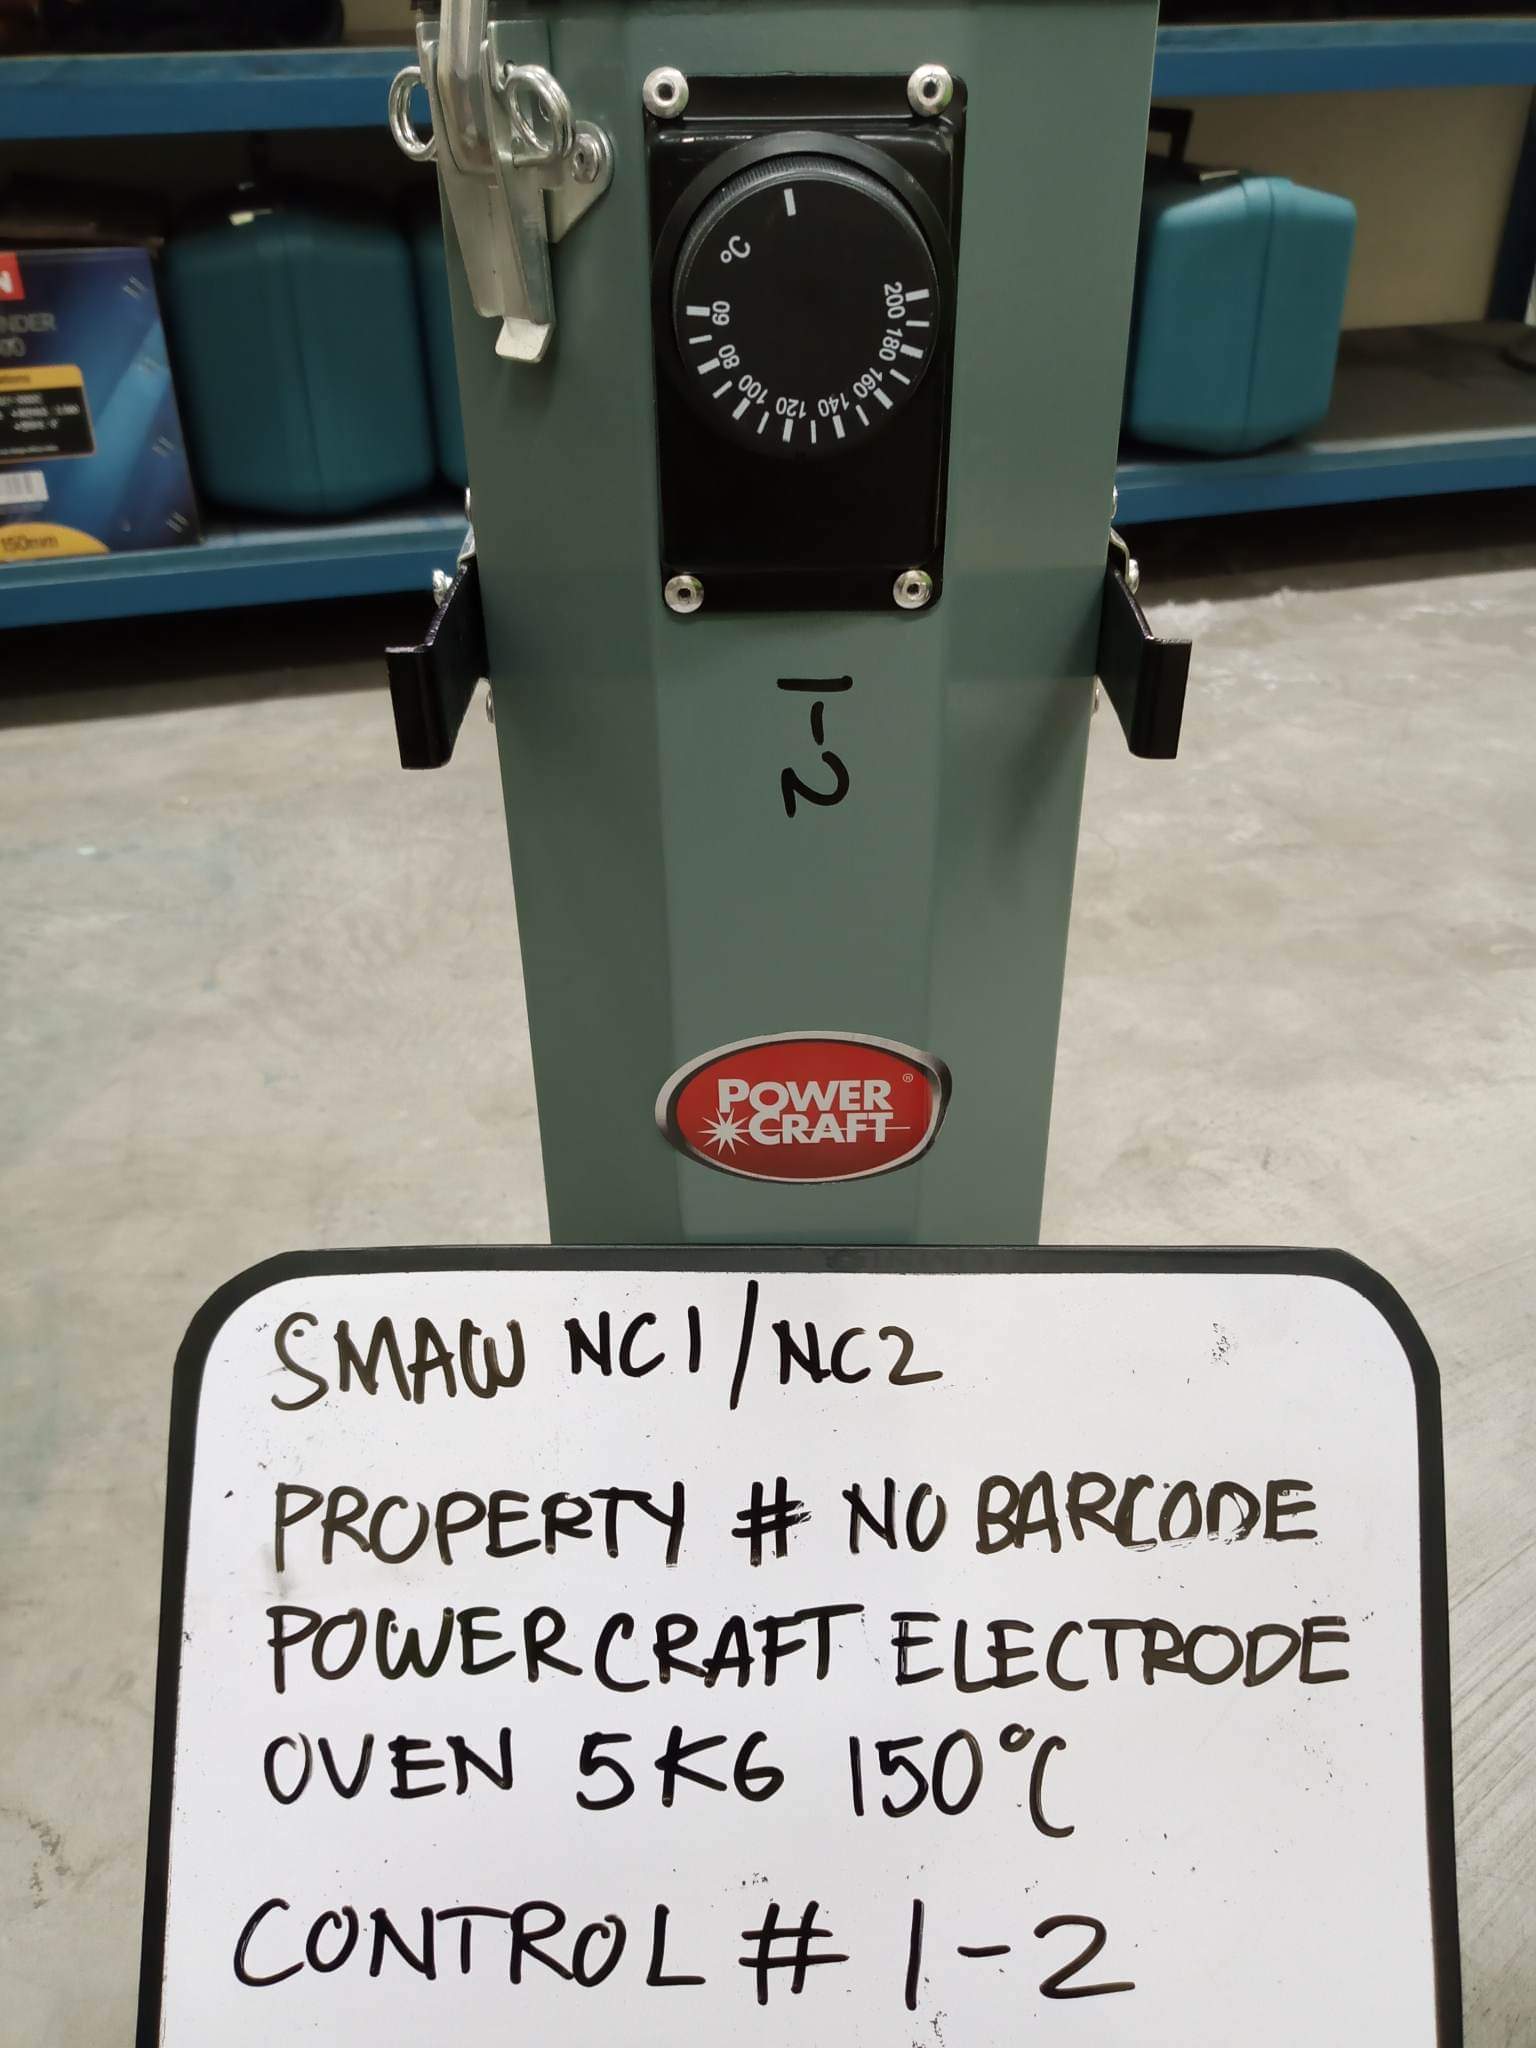 °C
60
80
100
120
140
160
180
200
1-2
POWER ®
CRAFT
150mm
SMAW NC1/NC2
PROPERTY # NO BARCODE
POWERCRAFT ELECTRODE
OVEN 5KG 150°C
CONTROL # 1-2